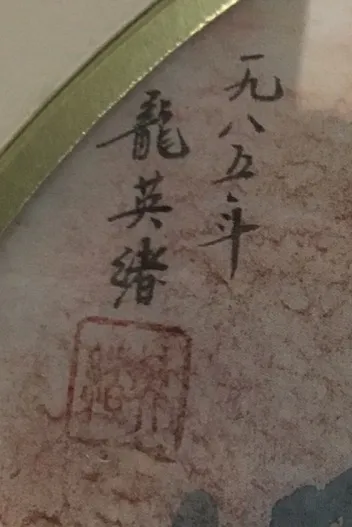 一九八五年
龍英緒